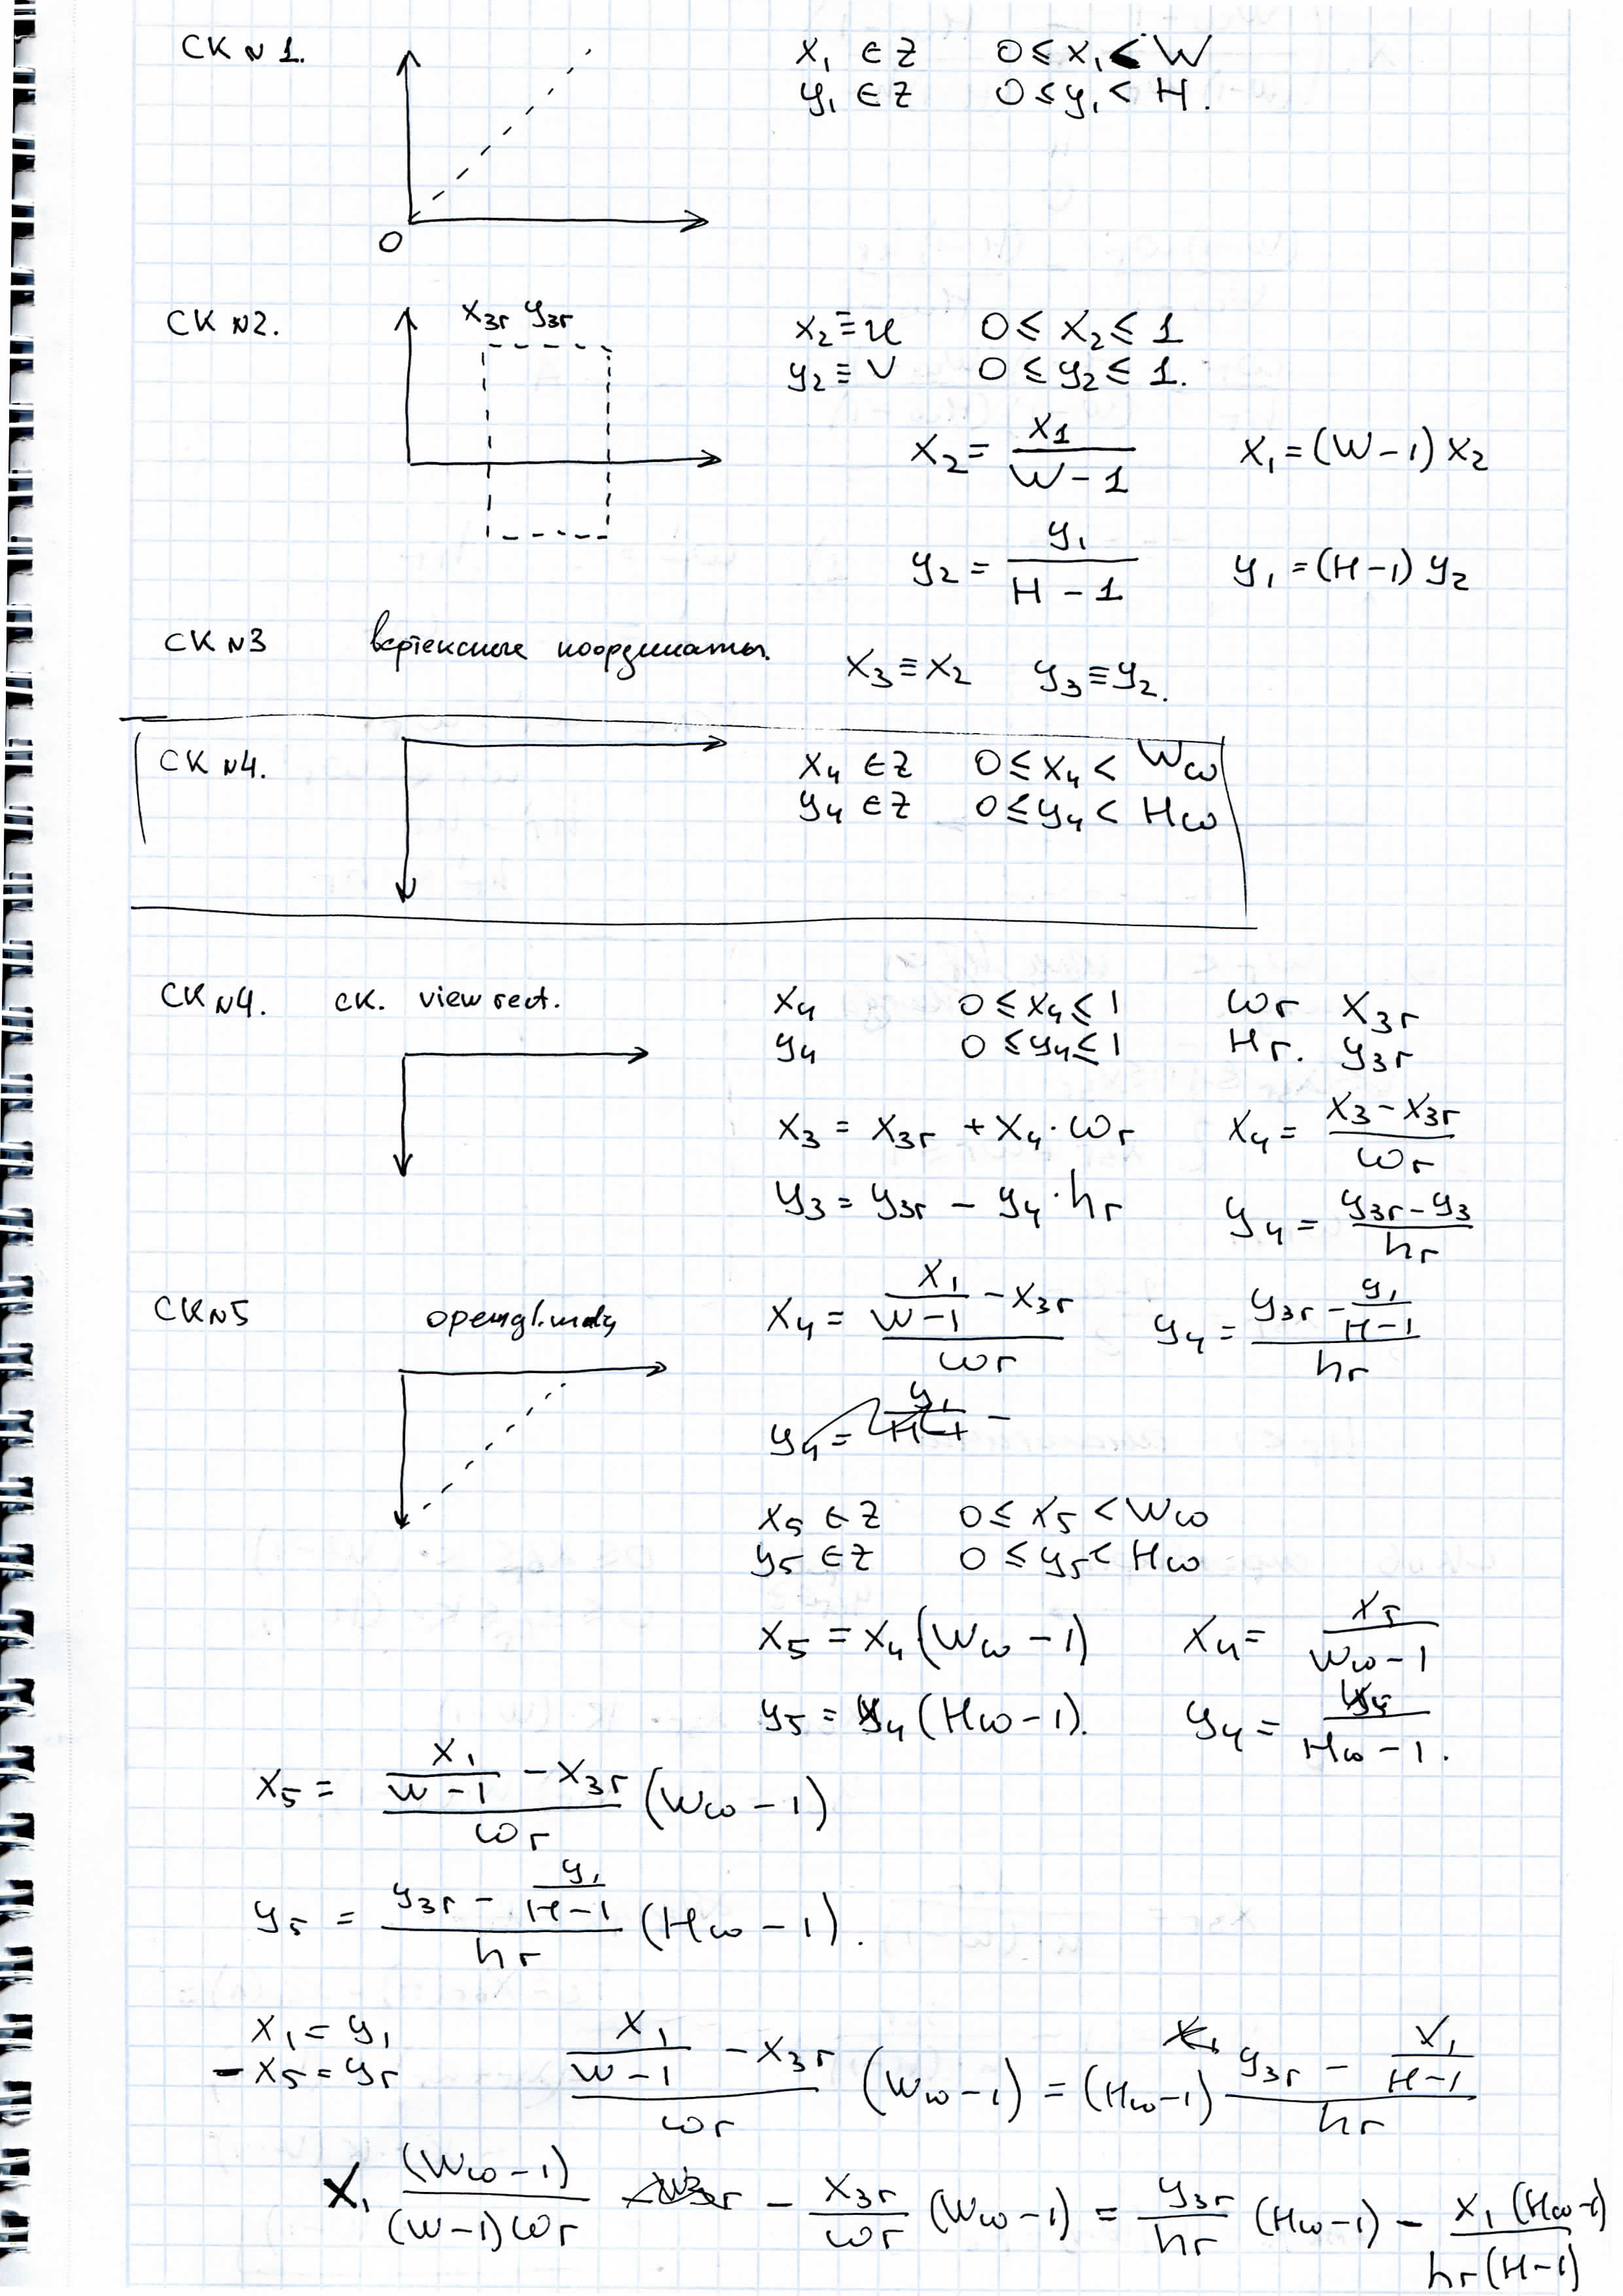 СК N 1.
x₁ ∈ Z 0 ≤ x₁ < W
y₁ ∈ Z 0 ≤ y₁ < H.
0
СК N2.
x₃r y₃r
x₂ ≡ u 0 ≤ x₂ ≤ 1
y₂ ≡ v 0 ≤ y₂ ≤ 1.
x₂ = x₁/(W-1) x₁ = (W-1) x₂
y₂ = y₁/(H-1) y₁ = (H-1) y₂
СК N3 вертексные координаты. x₃ ≡ x₂ y₃ ≡ y₂.
СК N4. x₄ ∈ Z 0 ≤ x₄ < Wω
y₄ ∈ Z 0 ≤ y₄ < Hω
СК N4. ск. view rect. x₄ 0 ≤ x₄ ≤ 1 ωr x₃r
y₄ 0 ≤ y₄ ≤ 1 Hr. y₃r
x₃ = x₃r + x₄ · ωr x₄ = (x₃ - x₃r)/ωr
y₃ = y₃r - y₄ · hr y₄ = (y₃r - y₃)/hr
СК N5
x₄ = (x₁/(W-1) - x₃r)/ωr y₄ = (y₃r - y₁/(H-1))/hr
y₄ = y₁/(H-1) -
x₅ ∈ Z 0 ≤ x₅ < Wω
y₅ ∈ Z 0 ≤ y₅ < Hω
x₅ = x₄ (Wω - 1) x₄ = x₅/(Wω - 1)
y₅ = y₄ (Hω - 1). y₄ = /(Hω - 1).
x₅ = (x₁/(W-1) - x₃r)/ωr (Wω - 1)
y₅ = (y₃r - y₁/(H-1))/hr (Hω - 1).
x₁ = y₁
- x₅ = y₅
(x₁/(W-1) - x₃r)/ωr (Wω - 1) = (Hω - 1) (y₃r - x₁/(H-1))/hr
x₁ (Wω - 1)/((W-1) ωr) - x₃r/ωr (Wω - 1) = y₃r/hr (Hω - 1) - x₁ (Hω - 1)/(hr (H-1))